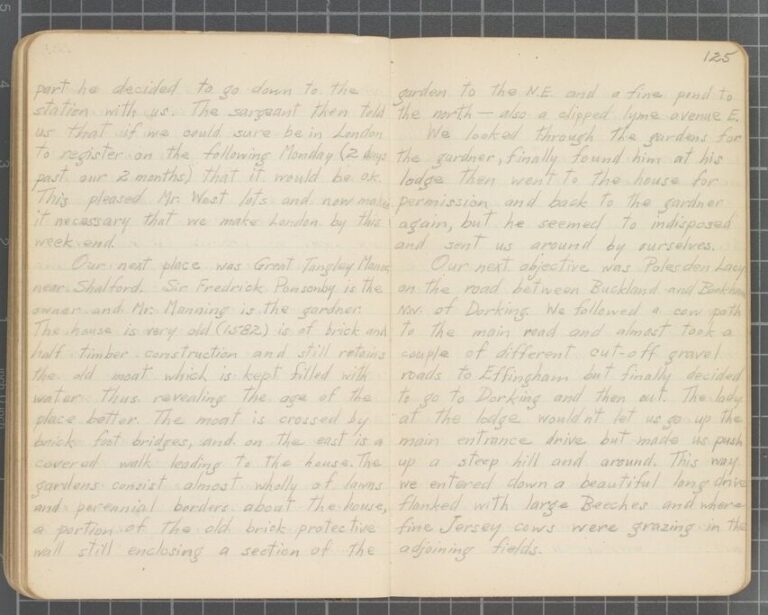 part he decided to go down to the
station with us. The sargeant then told
us that if we could sure be in London
to register on the following Monday (2 days
past our 2 months) that it would be ok.
This pleased Mr. West lots and now makes
it necessary that we make London by this
week end.
Our next place was Great Tangley Manor
near Shalford. Sir Fredrick Ponsonby is the
owner and Mr. Manning is the gardner.
The house is very old (1582) is of brick and
half timber construction and still retains
the old moat which is kept filled with
water thus revealing the age of the
place better. The moat is crossed by
brick foot bridges, and on the east is a
covered walk leading to the house. The
gardens consist almost wholly of lawns
and perennial borders about the house,
a portion of the old brick protective
wall still enclosing a section of the
125
garden to the N.E. and a fine pond to
the north — also a clipped lyme avenue E.
We looked through the gardens for
the gardner, finally found him at his
lodge then went to the house for
permission and back to the gardner
again, but he seemed to indisposed
and sent us around by ourselves.
Our next objective was Polesden Lacy
on the road between Buckland and Bookham
N.W. of Dorking. We followed a cow path
to the main road and almost took a
couple of different cut-off gravel
roads to Effingham but finally decided
to go to Dorking and then out. The lady
at the lodge wouldn't let us go up the
main entrance drive but made us push
up a steep hill and around. This way
we entered down a beautiful long drive
flanked with large Beeches and where
fine Jersey cows were grazing in the
adjoining fields.